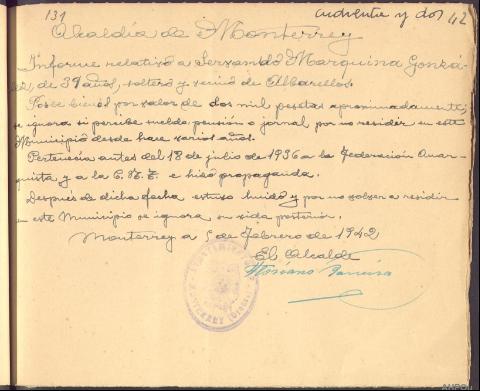 131
cuarenta y dos 42
Alcaldía de Monterrey
Informe relativo a Servando Marquina Gonzá-
lez, de 39 años, soltero y vecino de Albarellos.
Posee bienes por valor de dos mil pesetas aproximadamente;
se ignora si percibe sueldo pensión o jornal por no residir en este
Municipio desde hace varios años.
Pertenecia antes del 18 de julio de 1936 a la Federación Anar-
quista y a la C.N.T. e hizo propaganda.
Después de dicha fecha estuvo huido y por no volver a residir
en este Municipio se ignora su vida posterior.
Monterrey a 5 de Febrero de 1942
El Alcalde